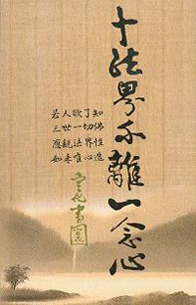 十法界不離一念心
若人欲了知
三世一切佛
應觀法界性
如是唯心造
宣化書